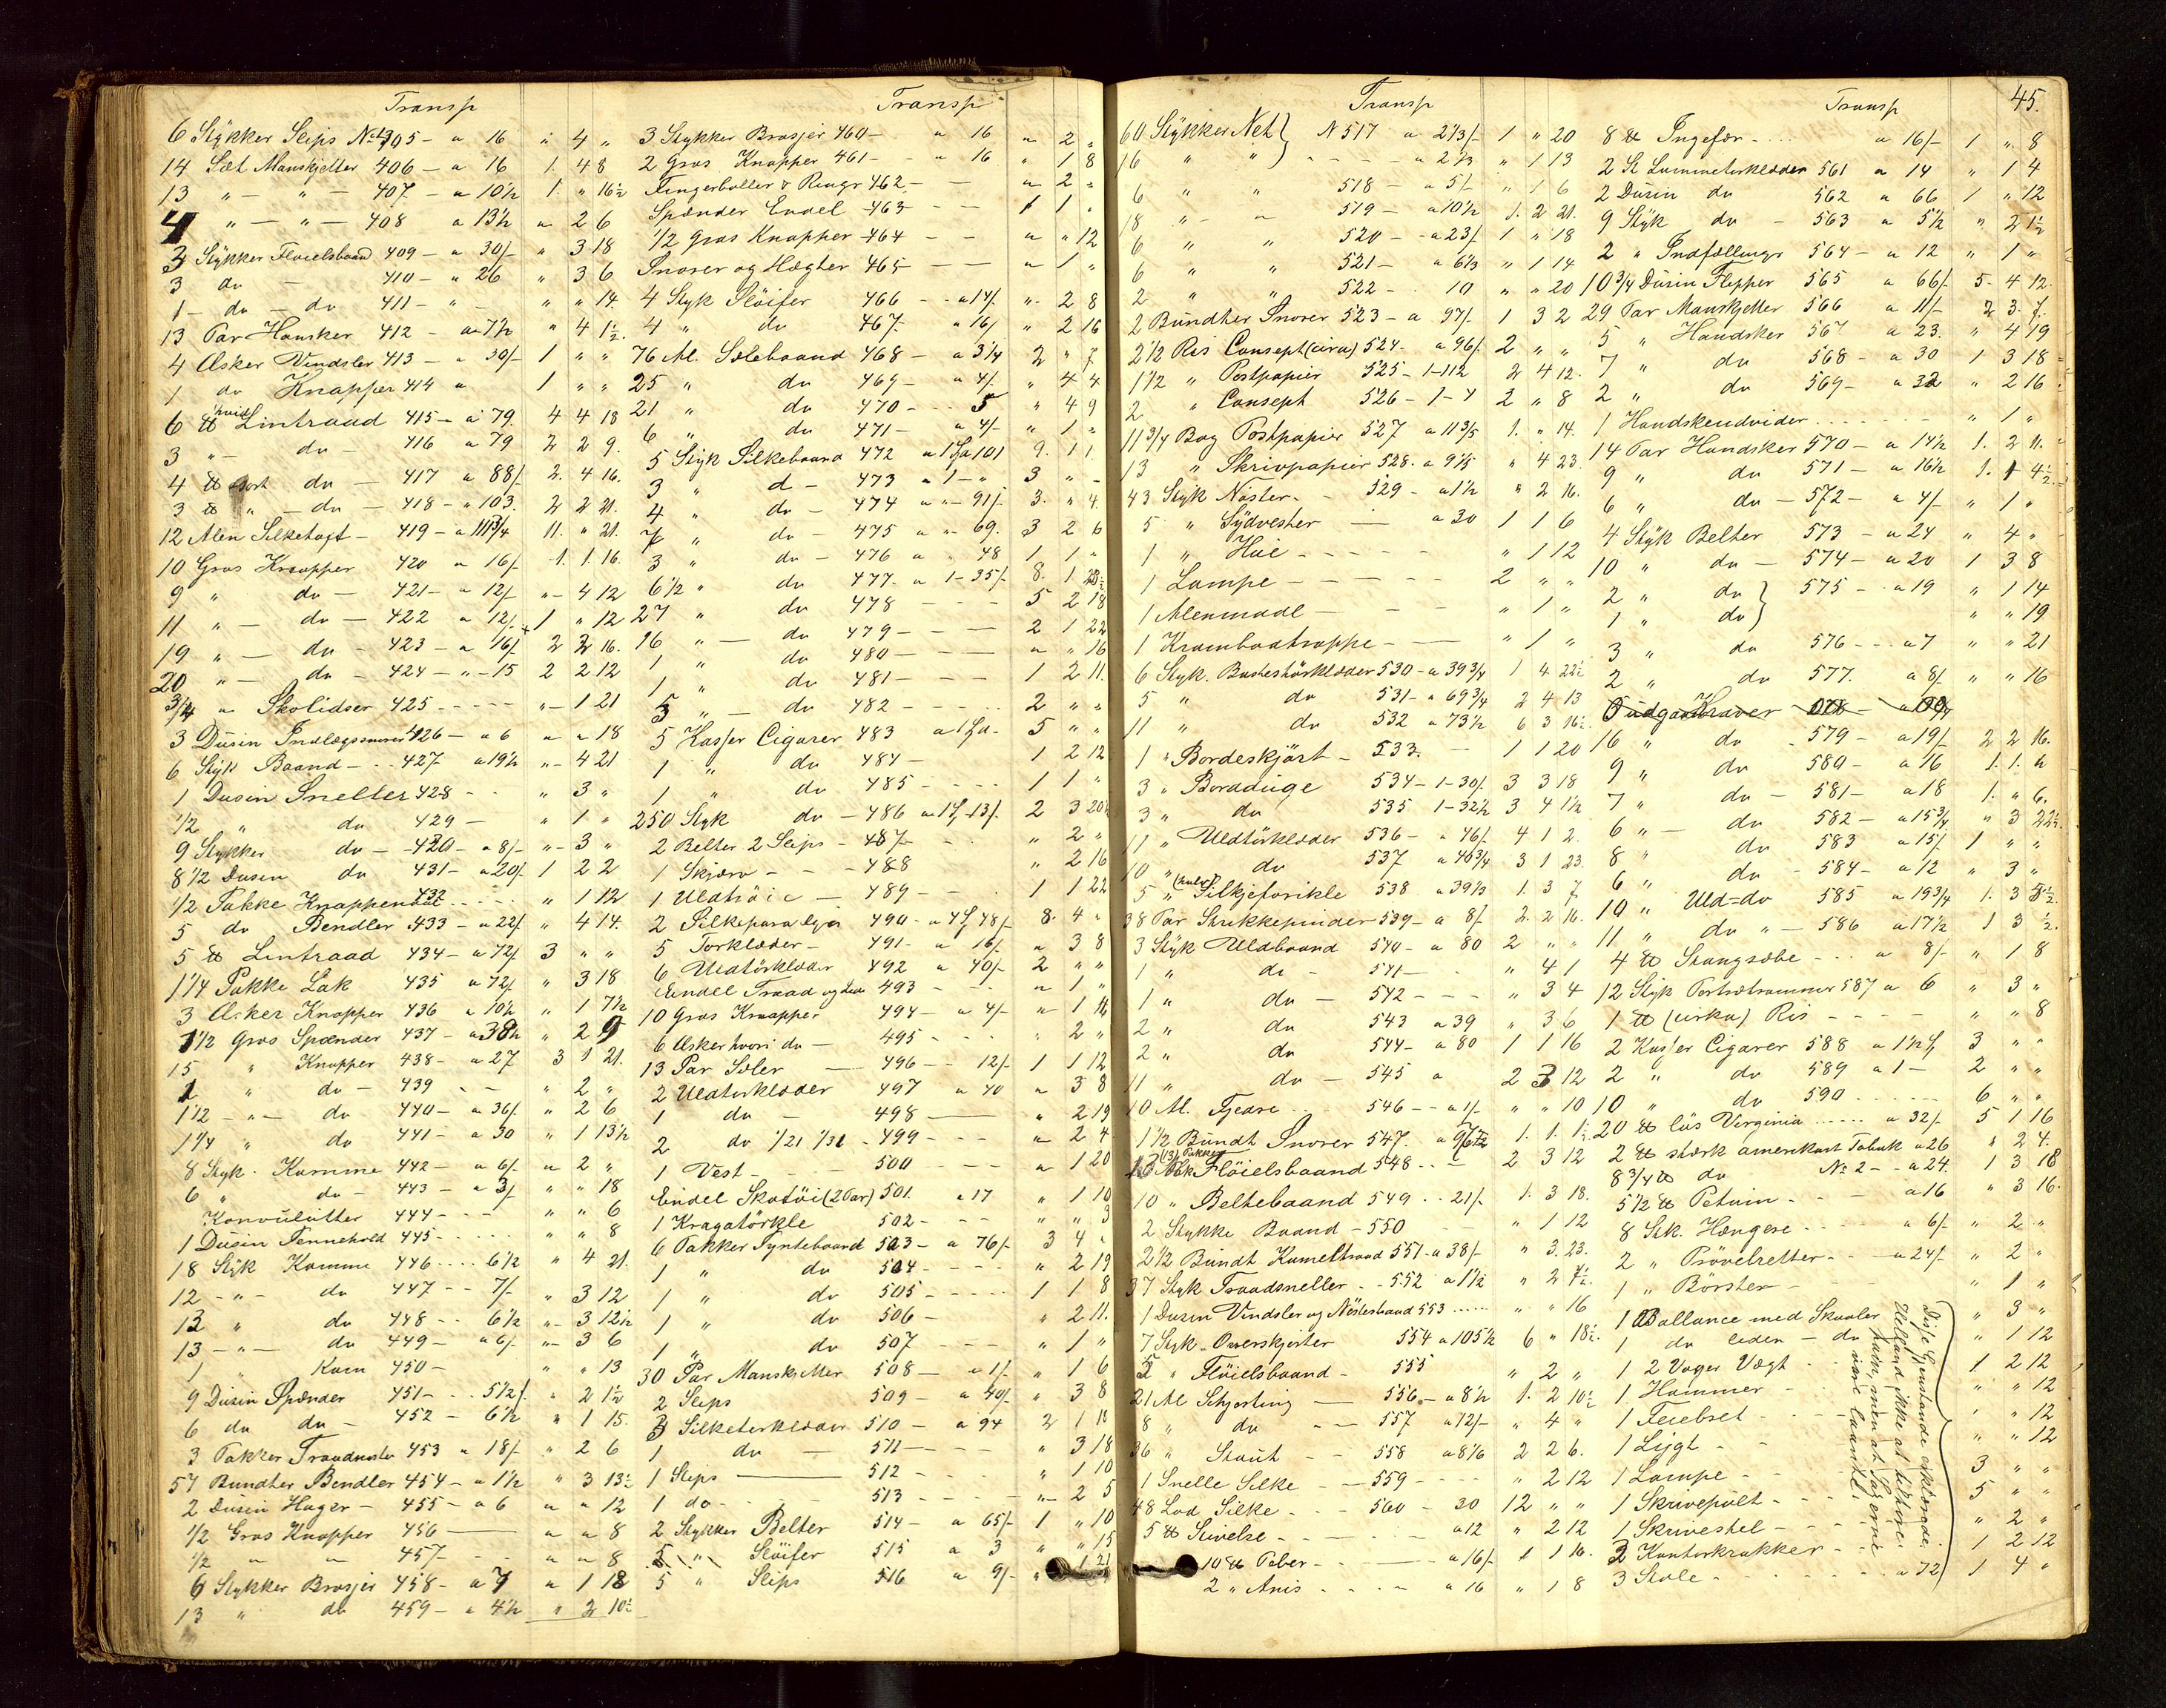 Transp
6 Stykker Slips No 405 - a 16 " 4 "
14 Sæt Manskjetter 406 - a 16 1 4 8
13 " - " - 407 - a 10½ 1 " 16½
4 " - " - 408 a 13½ " 2 6
3 Stykker Floielsbaand 409 - a 30/- " 3 18
3 do - 410 - " 26 " 3 6
1 - do - do 411 - " - " " 14
13 Par Hansker 412 - a 7½ " 4 1½
4 Æsker Vindsler 413 - a 30/- 1 " "
1 do Knapper 414 a 1 " "
6 ℔ hvid Lintraad 415 - a 79 4 4 18
3 " - do - 416 a 79 2 2 9
4 ℔ sort do - 417 a 88/- 2 4 16
3 ℔ " - do - 418 - " 103 2 2 21
12 Alen Silketoft - 419 - a 11¾ 11 " 21
10 Gros Knapper 420 a 16/- 1 1 16
9 " do - 421 - a 12/- " 4 12
11 " - do - 422 a 12/- 1 " 12
19 " - do - 423 - a 16/- 2 2 16
20 " - do - 424 - " - 15 2 2 12
3/4 " Skolidser 425 - - - - " 1 21
3 Dusin Indlægssnorer 426 - a 6 " " 18
6 Styk Baand - - 427 a 19½ " 4 21
1 Dusin Snelter 428 - - " 3 "
½ " do 429 - " 1 "
9 Stykker do - 420 - a 8/- " 3 "
8½ Dusin do 431 - a 20/- 1 2 2
½ Pakke 432 - - - " 1 12
5 do Bendler 433 - a 22/- " 4 14
5 ℔ Lintraad 434 - a 72/- 3 " "
1¼ Pakke Lak 435 a 72/- " 3 18
3 Æsker Knapper 436 a 10½ " 1 7½
1½ Gros Spænder 437 - a 38½ " 2 9
15 " Knapper 438 - a 27 3 1 21
1 " do - 439 - - " 2 "
1½ - " - do 440 - a 36/- " 2 6
1¼ " do 441 - a 30 " 1 13½
8 Styk - Kamme 442 - a 6/- " 2 "
6 " do - 443 - a 3/- " " 18
Konvulutter 444 - - - " " 6
1 Dusin Pennehold 445 - - - - " " 8
18 Styk Kamme 446 - - - 6½ " 4 21
12 - " - do 447 - - 7/- " 3 12
12 " do 448 - - 6½ " 3 12½
13 - " - do 449 - a 6/- " 3 6
1 " Kam 450 - " " 13
9 Dusin Spænder 451 - - - 5½/- " 2 1½
6 do do - 452 - 6½ " 1 15
3 Pakker 453 a 18/- " 2 6
57 Bundter Bendler 454 - a 1½ " 3 13½
2 Dusin Hager - 455 - a 6 " " 12
½ Gros Knapper 456 - " " 8
½ " " 457 - - " " 8
6 Stykker Brosjer 458 - a 7 " 1 18
13 " do 459 - a 4½ " 2 10½
Transp
3 Stykker Brosjer 460 - a 16 " 2 "
2 Gros Knapper 461 - - a 16 " 1 8
Fingerbøller & Ringe 462 - - " 2 "
Spænder Endel 463 - - - 1 1 "
½ Gros Knapper 464 - - " " 12
Snorer og Hægter 465 - - " 1 "
4 Styk Slöifer 466 - - a 14/- " 2 8
4 " do 467 - a 16/- " 2 16
76 Al. Sælebaand 468 - a 3¼ 2 " 7
25 " do 469 - a 4/- " 4 4
21 " do 470 - - - 5 " 4 9
6 " do 471 - a 4/- " 1 "
5 Styk Silkebaand 472 a 1 a 101 9 1 1
3 " d - 473 a 1 - " 3 " -
4 " do - 474 a " - 91/- 3 " 4
7 " do - 475 a " - 69 3 2 6
3 " do - 476 a " 48 1 1 "
6½ " do 477 a 1 - 35/- 8 1
27 " do 478 - - - 5 2 18
16 " - do 479 - - - 2 1 22
1 " do 480 - - - " " 16
1 " do 481 - - - 1 2 11
3 " - do 482 - - - - 2 " "
5 Kasser Cigarer 483 5 " "
1 " do 484 - 1 2 12
1 " do 485 - - - - 1 1 "
250 Styk do - 486 2 3 20½
2 Belter 2 Slips - 487 - - " 2 "
1 Skjærv - - - 488 " 2 16
1 Uldtröie - 489 - - - 1 1 22
2 Silkeparaplyer 490 - a 4 48/- 8 4 "
5 Torklæder - 491 - a 16/- " 3 8
6 Uldtörklæder 492 a 40/- 2 " "
Eendel Traad og 493 - - " 1 "
10 Gros Knapper 494 - a 4/- " 1 16
6 Æsker hvori do - 495 - - - " 2 "
13 Par Sæler - 496 - - 12/- 1 1 12
2 Uldtorklæder 497 a 40 " 3 8
1 do - 498 - " 2 19
2 do 1/21 1/31 - 499 - - - " 2 4
1 Vest - - - 500 - - " 1 20
Eindel Skotöi (2 Par) 501 a 17 " 1 10
1 Kragatörkle 502 - - - " " 3
6 Pakker Pyntebaand 503 - a 76/- 3 4 "
1 " do 504 - - - - " 2 19
1 " do 505 - - - - 1 1 8
1 " do 506 - " 2 11
1 " do 507 - - - " 1 "
30 Par Manskjetter 508 - a 1/- " 1 6
2 Slips 509 - a 40/- " 3 8
3 Silketorklæder 510 - a 94 2 1 18
1 do - 511 - - - " 3 18
1 Slips - 512 - - - " 1 10
1 do - - - 513 - - - " 2 5
2 Stykker Belter 514 - a 65/- 1 " 10
5 " Slöifer 515 a 3 " " 15
5 " Slips 516 a 9/- " 1 21
Transp
60 Stykker Net } N 517 a 2⅓/- 1 " 20
16 " " ) - - - - a 2⅓ " 1 13
6 " " 518 - a 5/- " 1 6
18 " - " 519 - a 10½ 1 2 21
6 " " 520 - - a 23/- 1 " 18
6 " " 521 - a 6⅓ " 1 14
2 " " 522 - - 10 " " 20
2 Bundter Snorer 523 - a 97/- 1 3 2
2½ Ris Consept (cirva) 524 - a 96/- 2 " "
1½ " Postpapier 525 - 1-112 2 4 12
2 " Consept 526 - 1 - 4 2 " 8
11¾ Bog Postpapier 527 a 11⅗ 1 " 14
13 " Skrivpapier 528 - a 9⅕ " 4 23
43 Styk Nöster - - 529 - a 1½ " 2 16
5 " Sydvester - a 30 1 1 6
1 " Hue - - - - - " 1 12
1 Lampe - - - - - 2 " "
1 Alenmaal - - - " 1 "
1 Krambodtrappe - - " 1 "
6 Styk. 530 - a 39¾ 1 4 22½
5 " do 531 - a 69¾ 2 4 13
11 " do 532 a 73½ 6 3 16½
1 " Bordeskjört - 533 - - 1 1 20
3 " Bordduge 534 - 1 - 30/- 3 3 18
3 " do 535 1 - 32½ 3 4 1½
11 " Uldtörklæder 536 - a 46/- 4 1 2
10 " do 537 a 46¾ 3 1 23
5 " (halv) Silkjeforikle 538 a 39⅓ 1 3 7
38 Par Strikkepinder 539 - a 8/- 2 2 16
3 Styk Uldbaand 540 - a 80 2 " "
1 " do - 541 - - " 4 1
1 " do - 542 - - - " 3 4
2 " do 543 a 39 " 3 6
2 " do 544 - a 80 1 1 16
11 " do - 545 a 2 3 12
10 Al. Fjedre 546 - - a 1/- " " 10
1½ Bundt Snorer 547 1 1 1½
Flöielsbaand 548 - - 2 3 12
10 " Beltebaand 549 - - 21/- 1 3 18
2 Stykke Baand - 550 " 1 12
2½ Bundt Kameltraad 551 - a 38/- " 3 23
37 Styk Traadsneller - - 552 a 1½ " 2 7½
1 Dusin Vindsler og Nöstesbaand 553 - - - " " 16
7 Styk - Overskjorter 554 a 105½ 6 " 18½
5 " Flöielsbaand - 555 " 2 "
21 Al Schjorting - 556 - a 8½ 1 2 10½
8 " do - - 557 a 12/- " 4 "
36 " Stout - 558 a 8⅙ 2 2 6
1 Snelle Silke - 559 - - - " 2 12
48 Lod Silke - 560 - 30 12 " "
5 ℔ Stivelse - - - - - a 12 " 2 12
10 ℔ Peber - - - - a 16/- 1 1 16
2 " Anis - - - - a 16 " 1 8
Transp 45.
8 ℔ Ingefær - - - a 16/- 1 " 8
2 St Lummetorklæder 561 a 14 " 1 4
2 Dusin do 562 a 66 1 " 12
9 Styk do - 563 a 5½ " 2 1½
2 " Indfællings 564 - a 12 " 1 "
10¾ Dusin Flipper 565 a 66/- 5 4 12
29 Par Manskjetter 566 a 11/- 2 3 7
5 " Handsker 567 a 23 " 4 19
7 " do 568 - a 30 1 3 18
2 " do 569 - a 32 " 2 16
1 Handskeudvider - - - - - - " 1 "
14 Par Handsker 570 - a 14½ 1 2 11
9 " do 571 - a 16½ 1 1 4½
6 " do - 572 - a 4/- " 1 "
4 Styk Belter 573 - a 24 " 4 "
10 " do - 574 - a 20 1 3 8
2 " do } 575 - - a 19 " 1 14
1 " do } " " 19
3 " do 576 - - - a 7 " " 21
2 " do 577 - a 8/- " " 16
16 " do - 579 - a 19/- 2 2 16
9 " do 580 - a 16 1 1 6
7 " do - 581 - a 18 1 " 6
6 " - do 582 - a 15¾ " 3 22½
8 " do 583 a 15/- 1 " "
6 " do - 584 - a 12 " 3 "
10 " Uld = do 585 a 19¾ 1 3
11 " do " - 586 a 17½ 1 3 ½
4 ℔ Stangsæbe - - - a 8/- " 1 8
12 Styk Portrætrammer 587 a 6 " 3 "
1 ℔ (cirka) Ris - - - - " " 8
2 Kasser Cigarer 588 a 1½ 3 " "
2 " do 589 a 1 - 2 " "
10 " do 590 - - - - - 6 " "
20 ℔ lös Virginia - - - - a 32/- 5 1 16
2 ℔ stærk amerikansk Tobak a 26 " 2 4
8¾ ℔ do No 2 - - a 24 1 3 18
5½ ℔ Petum - - - a 16 " 3 16
8 Stk. Hængere - - - - a 6/- " 2 "
2 " Prövebretter - - - a 24/- " 2 "
1 " Börster - " 1 "
1 Ballance med Skaaler " 3 "
1 do liden - do " 1 12
1 2 Voger Vægt - 1 2 12
1 Hammer - " " 12
1 Feiebret - " " 12
1 Lygt - - " " 12
1 Lampe - - 3 " "
1 Skrivepult - - 5 " "
1 Skrivestel - - - " 2 "
2 Kontorkrakker - - 1 2 12
3 Stole - - - - - a 72 1 4 "
Disse Gjenstande oplæstes,
Helland ikke at tilhöre
ham, men at Eierne
vare